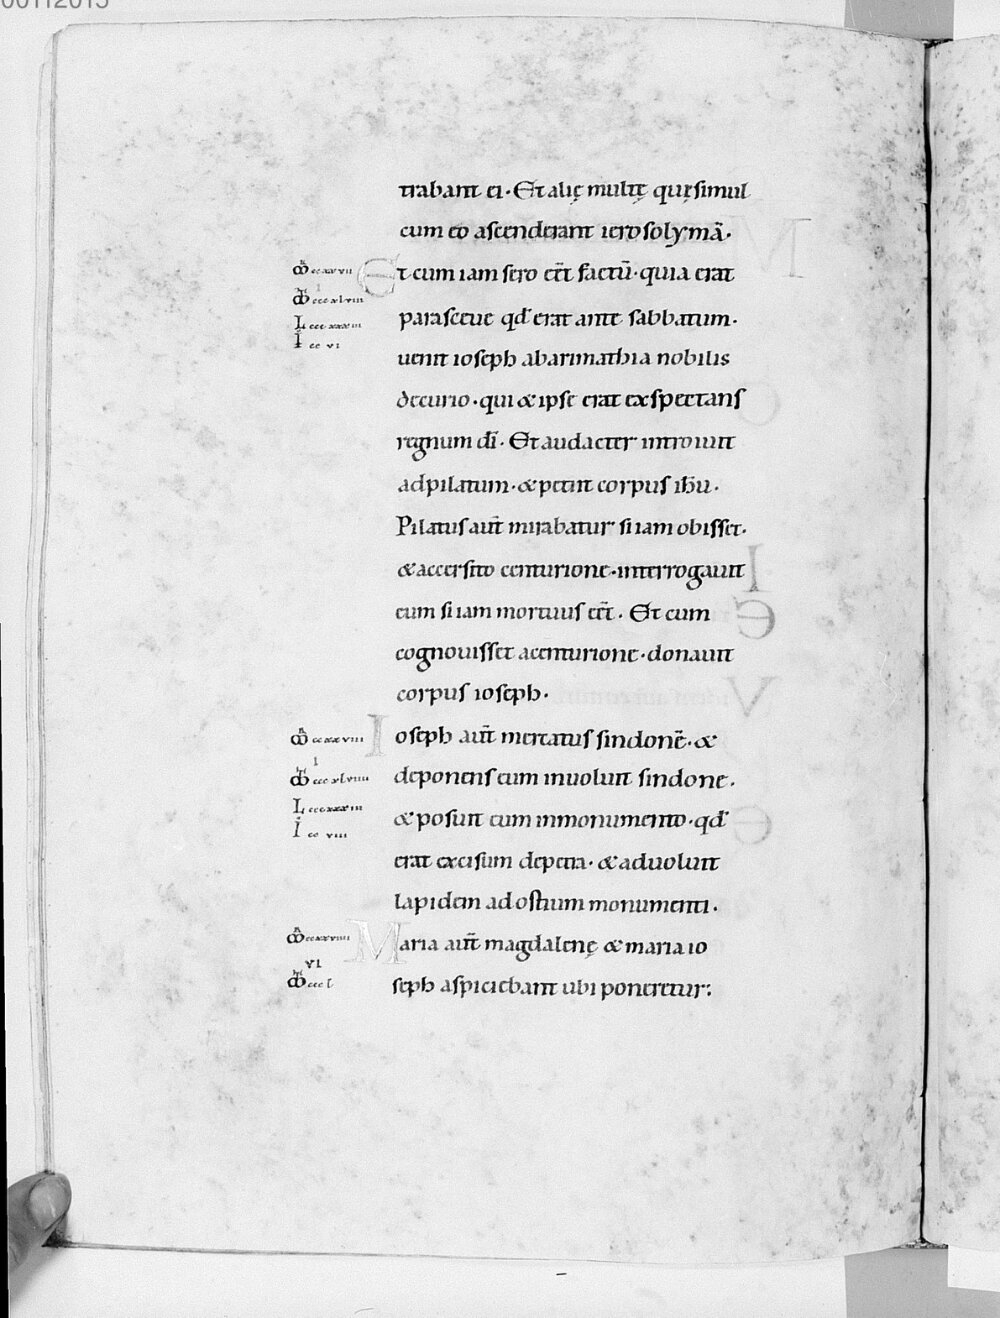 trabant ei · Et alię multę quę simul
cum eo ascenderant ierosolymā ·
Et cum iam sero eēt factū · quia erat
parasceue qđ erat ante sabbatum ·
uenit ioseph abarimathia nobilis
decurio · qui & ipse erat exspectans
regnum dī · Et audacter introiuit
ad pilatum · & petiit corpus ihu ·
Pilatus aut̄ mirabatur si iam obisset ·
& accersito centurione · interrogauit
eum si iam mortuus eēt · Et cum
cognouisset acenturione · donauit
corpus ioseph ·
Ioseph aut̄ mercatus sindonē · &
deponens eum inuoluit sindone ·
& posuit eum inmonumento · qđ
erat excisum depetra · & aduoluit
lapidem ad ostium monumenti ·
Maria aut̄ magdalenę & maria io
seph aspiciebant ubi poneretur :